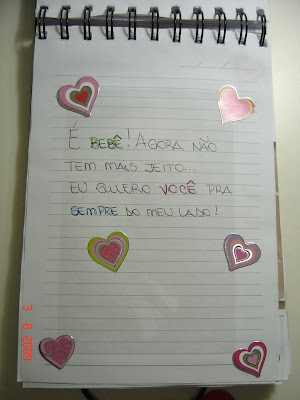 É BEBÊ! AGORA NÃO
TEM MAIS JEITO...
EU QUERO VOCÊ PRA
SEMPRE DO MEU LADO!
3 8 2009